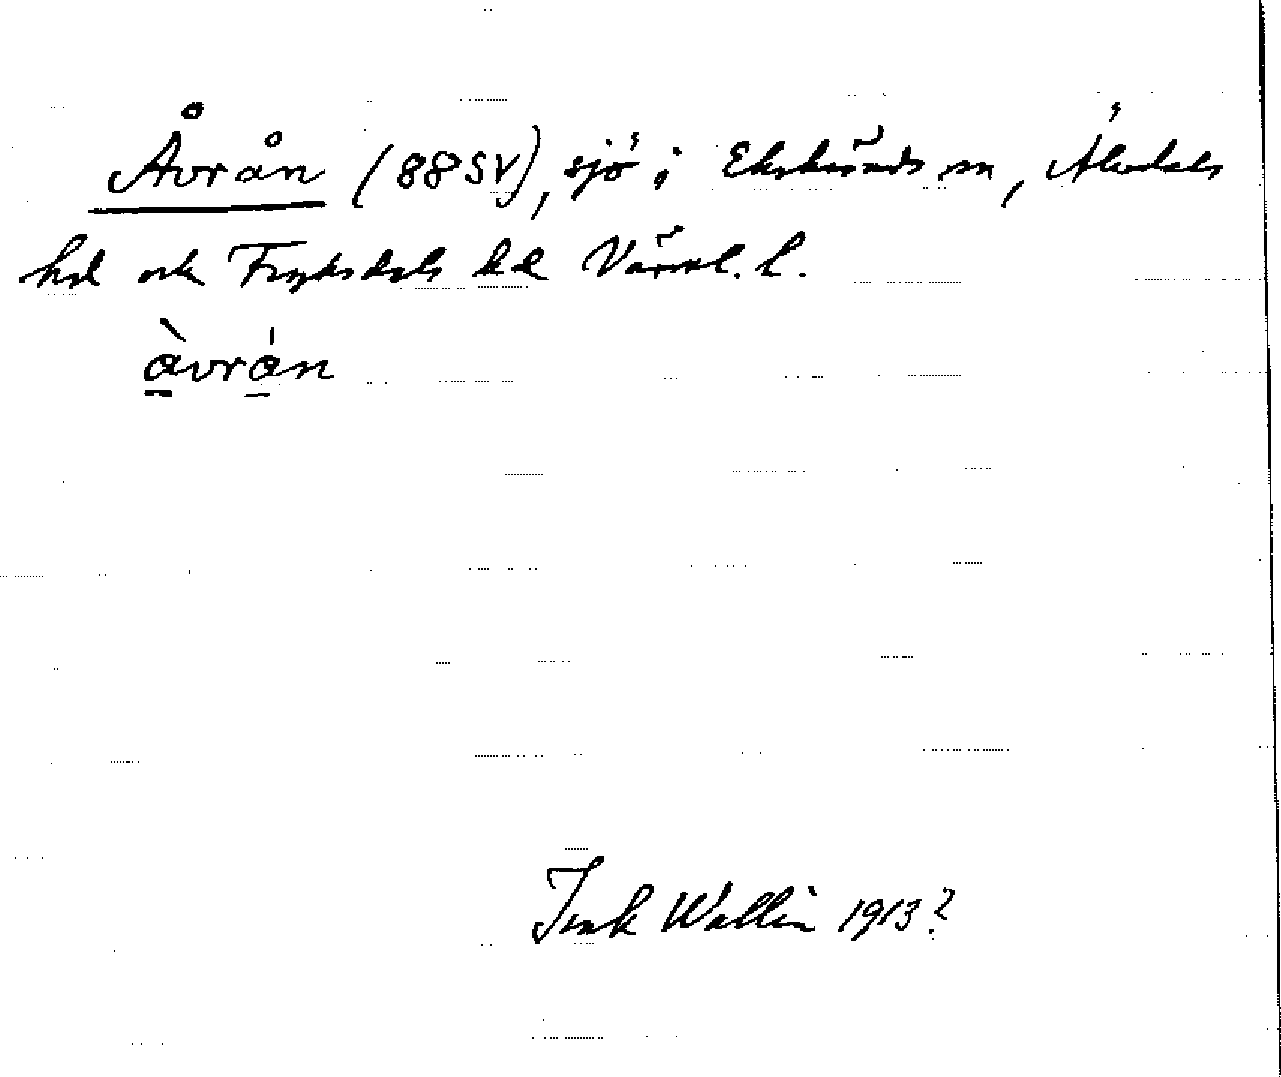 Åvrån (88SV), sjö i Ekshärads sn, Älvdals
hd och Fryksdals hd Värml. l.
à̱vrá̱n
Wallin 1913?